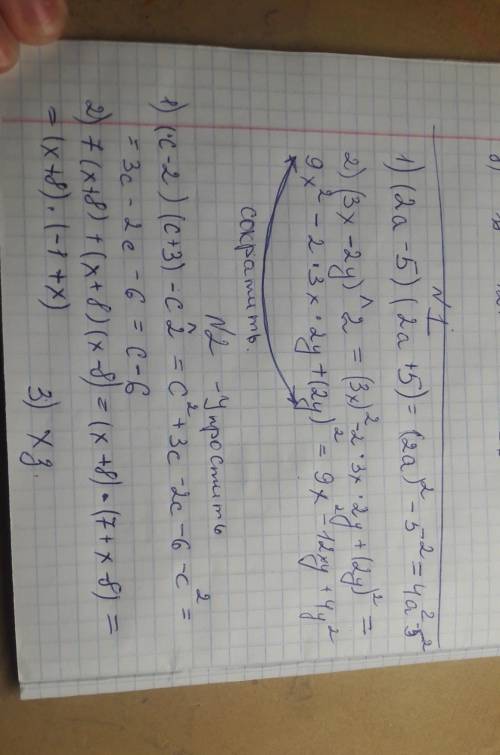 N1
1) (2a - 5)(2a + 5) = (2a)² - 5² = 4a² - 5²
2) (3x - 2y)^2 = (3x)² - 2·3x·2y + (2y)² =
9x² - 2·3x·2y + (2y)² = 9x² - 12xy + 4y²
сократить.
N2 - упростить
1) (c - 2)(c + 3) - c^2 = c² + 3c - 2c - 6 - c² =
= 3c - 2c - 6 = c - 6
2) 7(x + 8) + (x + 8)(x - 8) = (x + 8)·(7 + x - 8) =
= (x + 8)·(-1 + x)
3) хз.